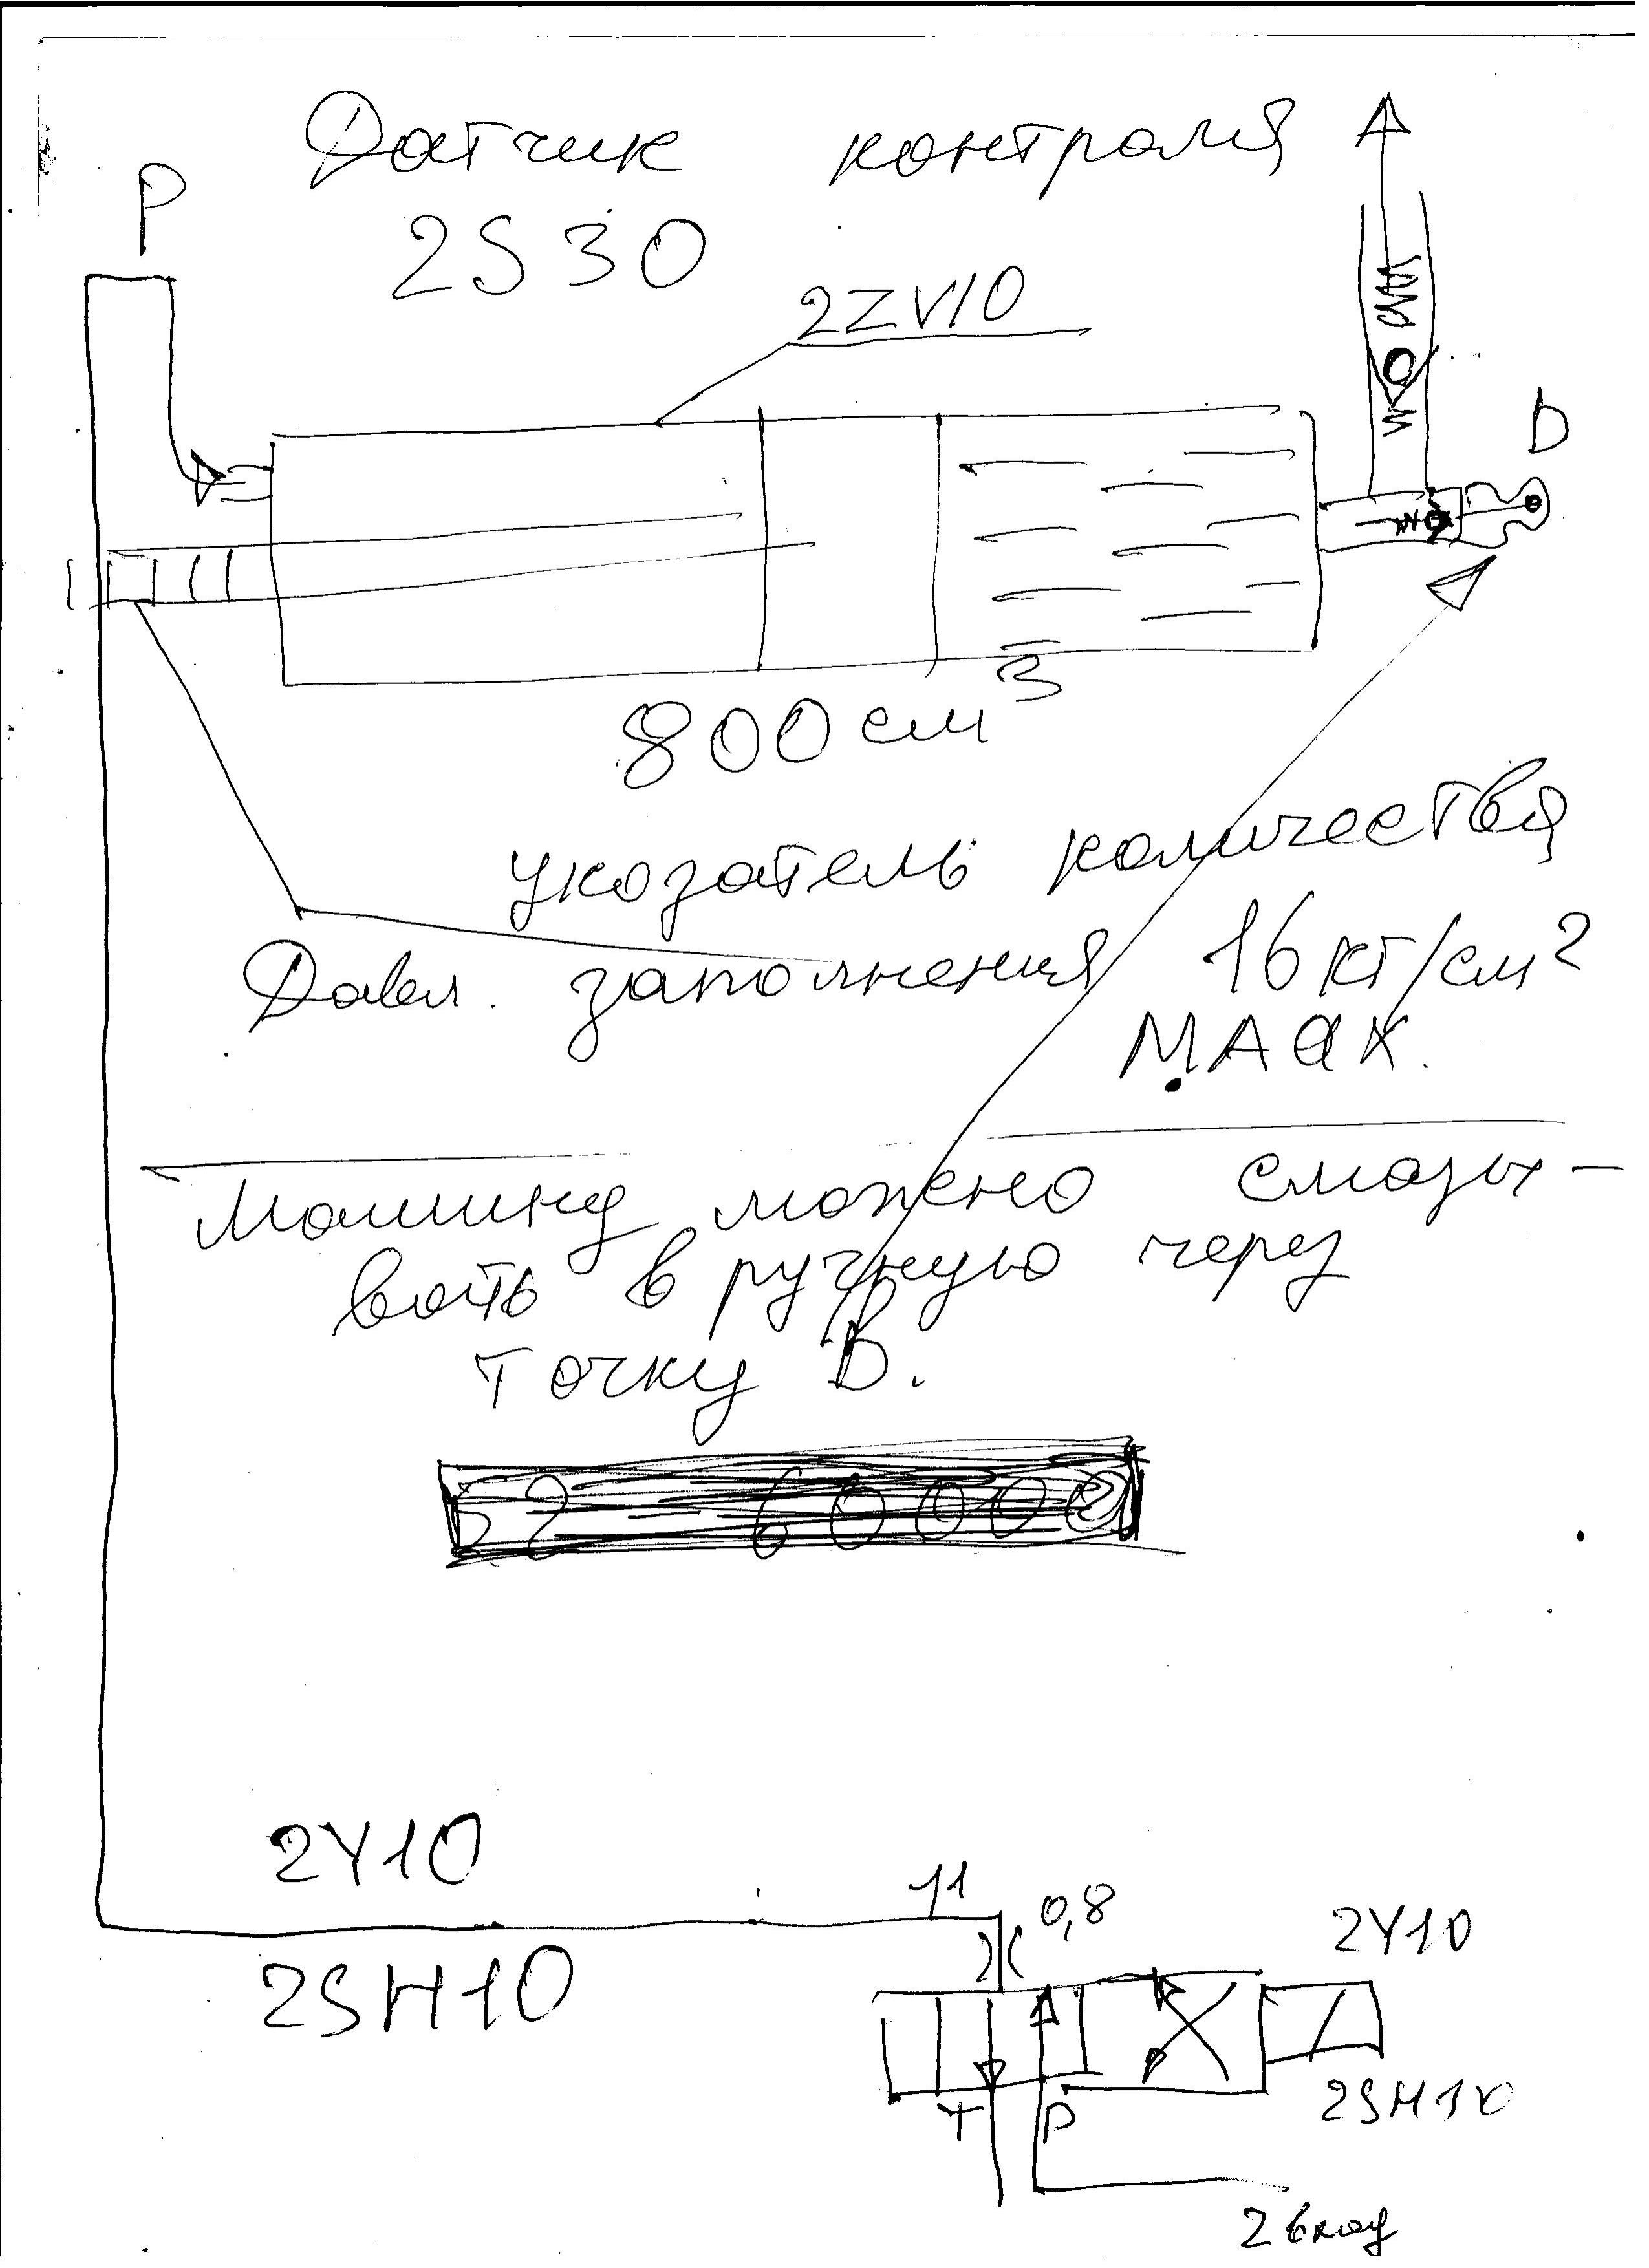 Датчик контроля
P
2S30
2ZV10
D
800 см³
указатель количества
Давл. заполнения 16 кг/см²
МАах.
Машину можно смазы-
вать в ручную через
точку D.
2Y10
11
0,8
2Y10
2SH10
T
P
2SH10
2 вход